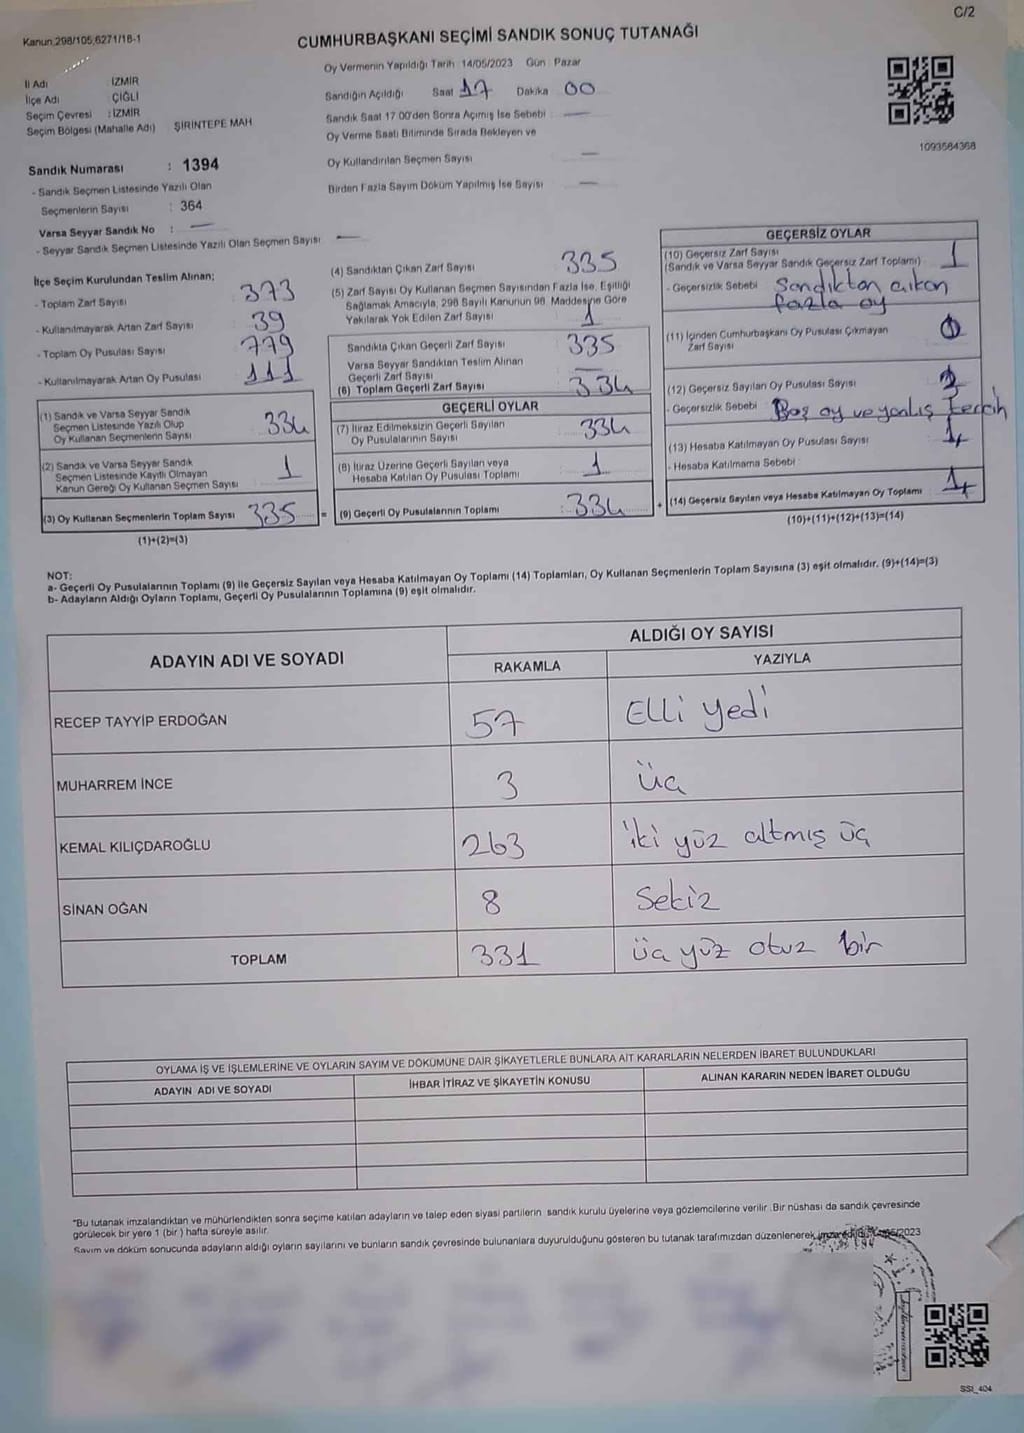 C/2
Kanun,298/105,6271/18-1
CUMHURBAŞKANI SEÇİMİ SANDIK SONUÇ TUTANAĞI
Oy Vermenin Yapıldığı Tarih : 14/05/2023 Gün : Pazar
İl Adı : İZMİR
İlçe Adı : ÇİĞLİ
Seçim Çevresi : İZMİR
Seçim Bölgesi (Mahalle Adı) : ŞİRİNTEPE MAH
Sandığın Açıldığı Saat 17 Dakika 00
Sandık Saat 17 00'den Sonra Açımış İse Sebebi : —
Oy Verme Saati Bitiminde Sırada Bekleyen ve
Oy Kullandırılan Seçmen Sayısı —
Birden Fazla Sayım Döküm Yapılmış İse Sayısı —
1093584368
Sandık Numarası : 1394
- Sandık Seçmen Listesinde Yazılı Olan
Seçmenlerin Sayısı : 364
Varsa Seyyar Sandık No : —
- Seyyar Sandık Seçmen Listesinde Yazılı Olan Seçmen Sayısı —
İlçe Seçim Kurulundan Teslim Alınan;
- Toplam Zarf Sayısı 373
- Kullanılmayarak Artan Zarf Sayısı 39
- Toplam Oy Pusulası Sayısı 779
- Kullanılmayarak Artan Oy Pusulası 111
(1) Sandık ve Varsa Seyyar Sandık
Seçmen Listesinde Yazılı Olup
Oy Kullanan Seçmenlerin Sayısı 334
(2) Sandık ve Varsa Seyyar Sandık
Seçmen Listesinde Kayıtlı Olmayan
Kanun Gereği Oy Kullanan Seçmen Sayısı 1
(3) Oy Kullanan Seçmenlerin Toplam Sayısı 335 =
(1)+(2)=(3)
(4) Sandıktan Çıkan Zarf Sayısı 335
(5) Zarf Sayısı Oy Kullanan Seçmen Sayısından Fazla İse, Eşitliği
Sağlamak Amacıyla, 298 Sayılı Kanunun 98. Maddesine Göre
Yakılarak Yok Edilen Zarf Sayısı 1
Sandıkta Çıkan Geçerli Zarf Sayısı 335
Varsa Seyyar Sandıktan Teslim Alınan
Geçerli Zarf Sayısı —
(6) Toplam Geçerli Zarf Sayısı 334
GEÇERLİ OYLAR
(7) İtiraz Edilmeksizin Geçerli Sayılan
Oy Pusulalarının Sayısı 334
(8) İtiraz Üzerine Geçerli Sayılan veya
Hesaba Katılan Oy Pusulası Toplamı 1
(9) Geçerli Oy Pusulalarının Toplamı : 334 +
GEÇERSİZ OYLAR
(10) Geçersiz Zarf Sayısı 1
(Sandık ve Varsa Seyyar Sandık Geçersiz Zarf Toplamı)
- Geçersizlik Sebebi : Sandıktan çıkan
fazla oy
(11) İçinden Cumhurbaşkanı Oy Pusulası Çıkmayan
Zarf Sayısı
(12) Geçersiz Sayılan Oy Pusulası Sayısı
- Geçersizlik Sebebi : Boş oy ve yanlış tercih
(13) Hesaba Katılmayan Oy Pusulası Sayısı
- Hesaba Katılmama Sebebi :
(14) Geçersiz Sayılan veya Hesaba Katılmayan Oy Toplamı
(10)+(11)+(12)+(13)=(14)
NOT:
a- Geçerli Oy Pusulalarının Toplamı (9) ile Geçersiz Sayılan veya Hesaba Katılmayan Oy Toplamı (14) Toplamları, Oy Kullanan Seçmenlerin Toplam Sayısına (3) eşit olmalıdır. (9)+(14)=(3)
b- Adayların Aldığı Oyların Toplamı, Geçerli Oy Pusulalarının Toplamına (9) eşit olmalıdır.
ADAYIN ADI VE SOYADI
ALDIĞI OY SAYISI
RAKAMLA YAZIYLA
RECEP TAYYİP ERDOĞAN 57 Elli yedi
MUHARREM İNCE 3 üç
KEMAL KILIÇDAROĞLU 263 iki yüz altmış üç
SİNAN OĞAN 8 Sekiz
TOPLAM 331 üç yüz otuz bir
OYLAMA İŞ VE İŞLEMLERİNE VE OYLARIN SAYIM VE DÖKÜMÜNE DAİR ŞİKAYETLERLE BUNLARA AİT KARARLARIN NELERDEN İBARET BULUNDUKLARI
ADAYIN ADI VE SOYADI İHBAR İTİRAZ VE ŞİKAYETİN KONUSU ALINAN KARARIN NEDEN İBARET OLDUĞU
*Bu tutanak imzalandıktan ve mühürlendikten sonra seçime katılan adayların ve talep eden siyasi partilerin sandık kurulu üyelerine veya gözlemcilerine verilir. Bir nüshası da sandık çevresinde
görülecek bir yere 1 (bir) hafta süreyle asılır.
Sayım ve döküm sonucunda adayların aldığı oyların sayılarını ve bunların sandık çevresinde bulunanlara duyurulduğunu gösteren bu tutanak tarafımızdan düzenlenerek imza edildi.
SSI_404